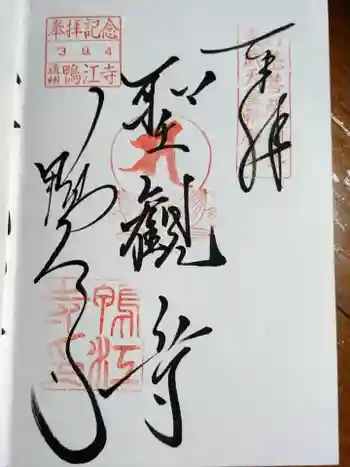 奉拝
聖観音
鴨江寺
奉拝記念
394
遠州鴨江寺
鴨江
寺印